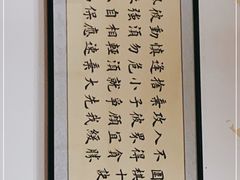 圍棋十
不得貪勝
入界宜緩
攻彼顧我
棄子爭先
捨小就大
逢危須棄
慎勿輕速
動須相應
彼強自保